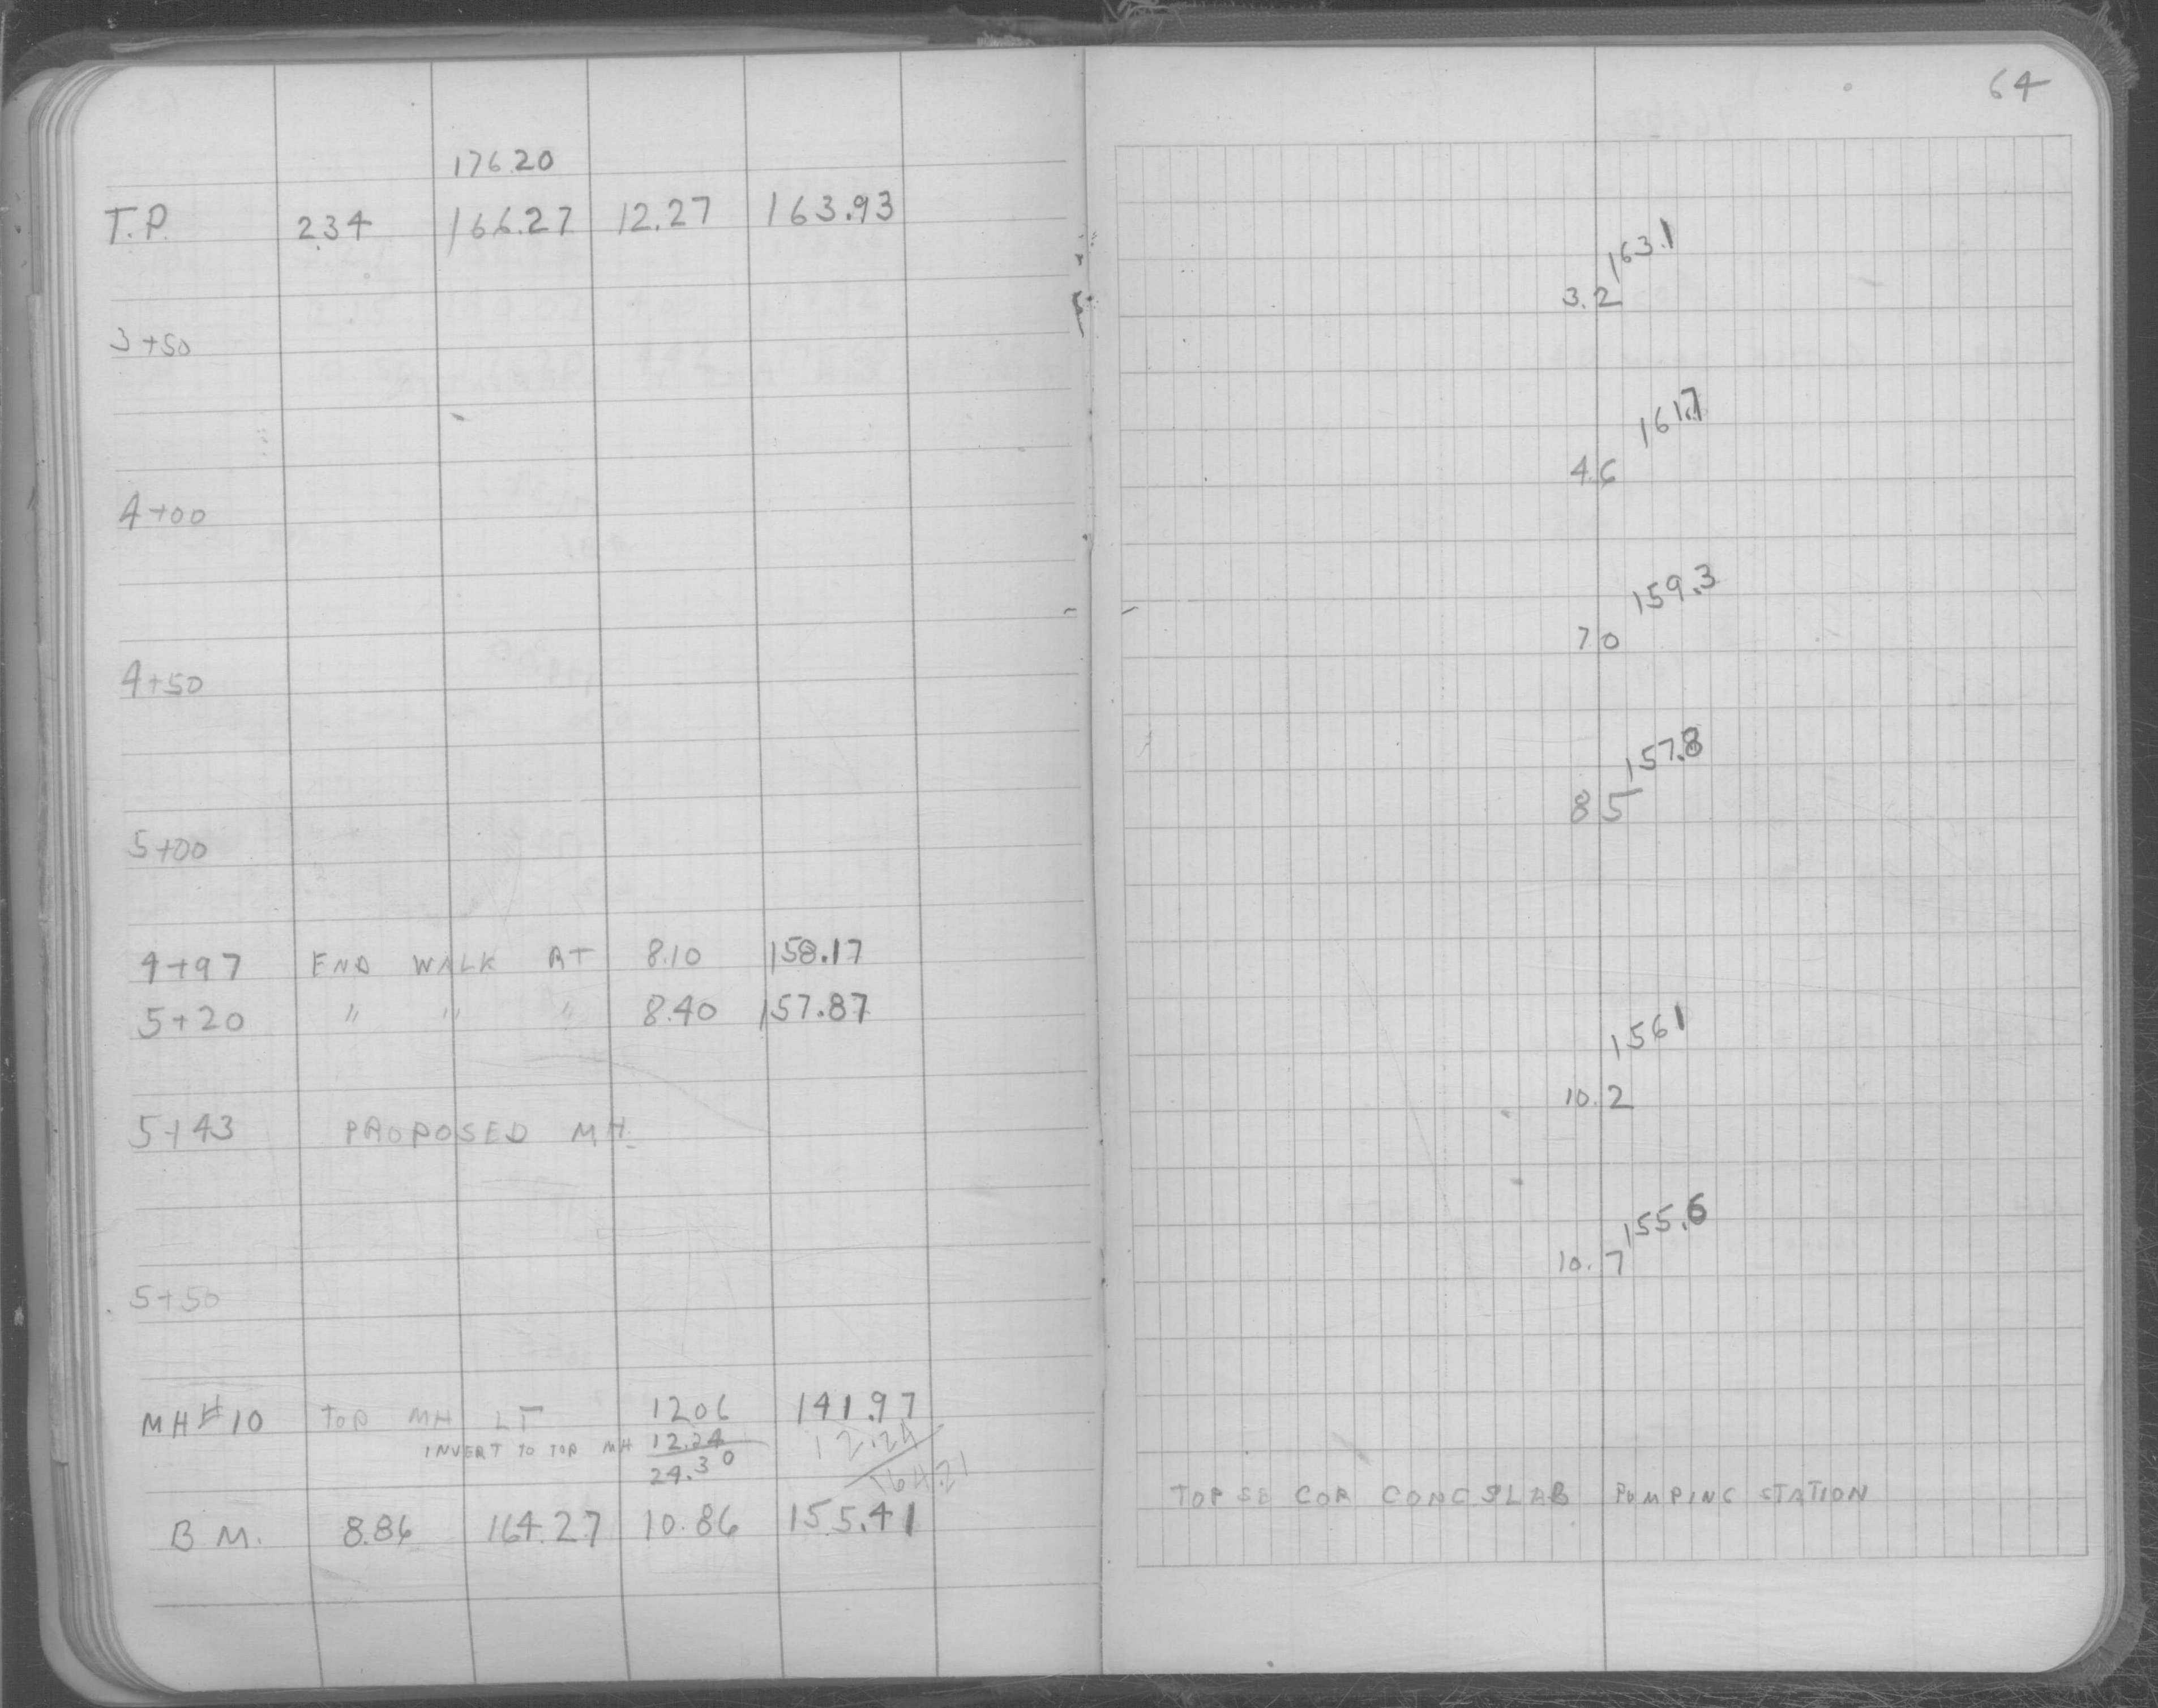 64
176.20
T.P. 2.34 166.27 12.27 163.93
163.1
3.2
3+50
161.7
4.6
4+00
159.3
7.0
4+50
157.8
8.5
5+00
4+97 END WALK RT 8.10 158.17
5+20 " " " 8.40 157.87
156.1
10.2
5+43 PROPOSED MH.
155.6
10.7
5+50
MH#10 TOP MH LT 12.06 141.97
INVERT TO TOP MH 12.24 12.24
24.30
B M. 8.86 164.27 10.86 155.41 TOP SE COR CONC SLAB PUMPING STATION